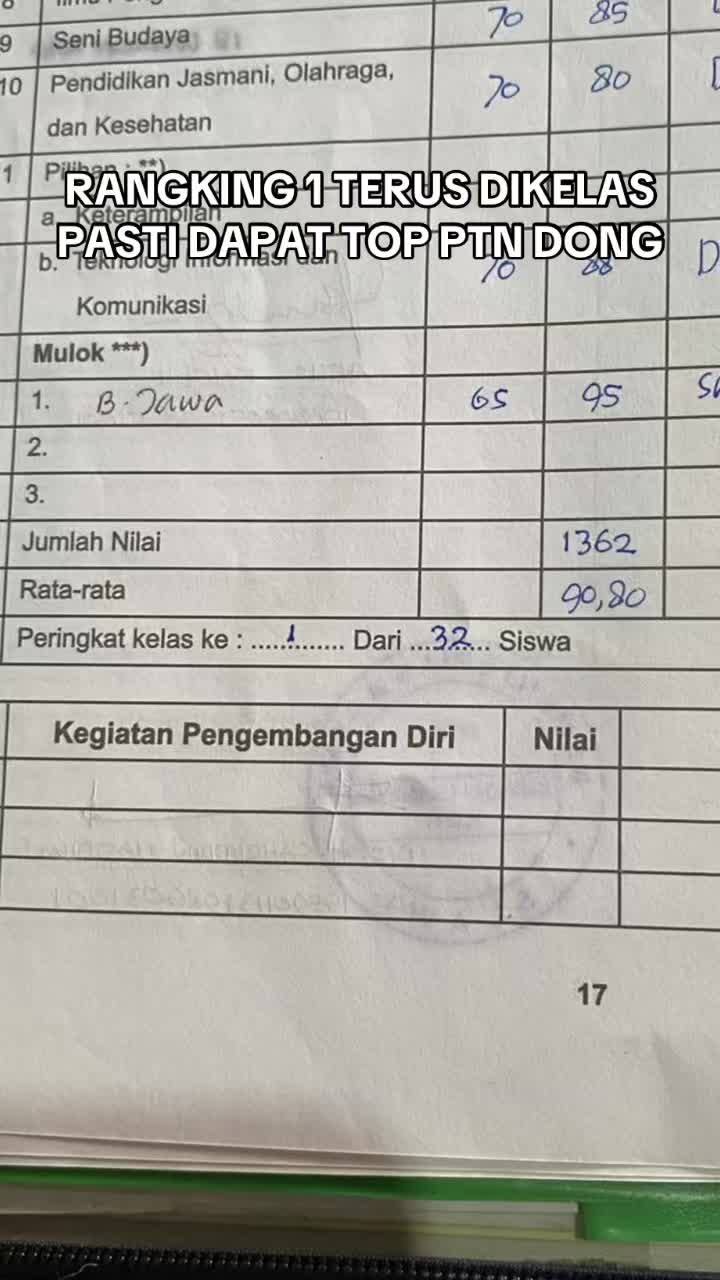 9 Seni Budaya 70 85
10 Pendidikan Jasmani, Olahraga, 70 80
dan Kesehatan
1 Pilihan : **)
RANGKING 1 TERUS DIKELAS
a. Keterampilan
PASTI DAPAT TOP PTN DONG
b. Teknologi Informasi dan 70 88 D
Komunikasi
Mulok ***)
1. B. Jawa 65 95
2.
3.
Jumlah Nilai 1362
Rata-rata 90,80
Peringkat kelas ke : .....1....... Dari ...32... Siswa
Kegiatan Pengembangan Diri Nilai
17